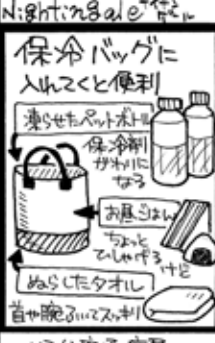 Nightingale
保冷バッグに
入れてくと便利
凍らせたペットボトル
保冷剤
がわりに
なる
お昼ごはん
ちょっと
ひしゃげる
けど
ぬらしたタオル
首や腕ふいてスッキリ